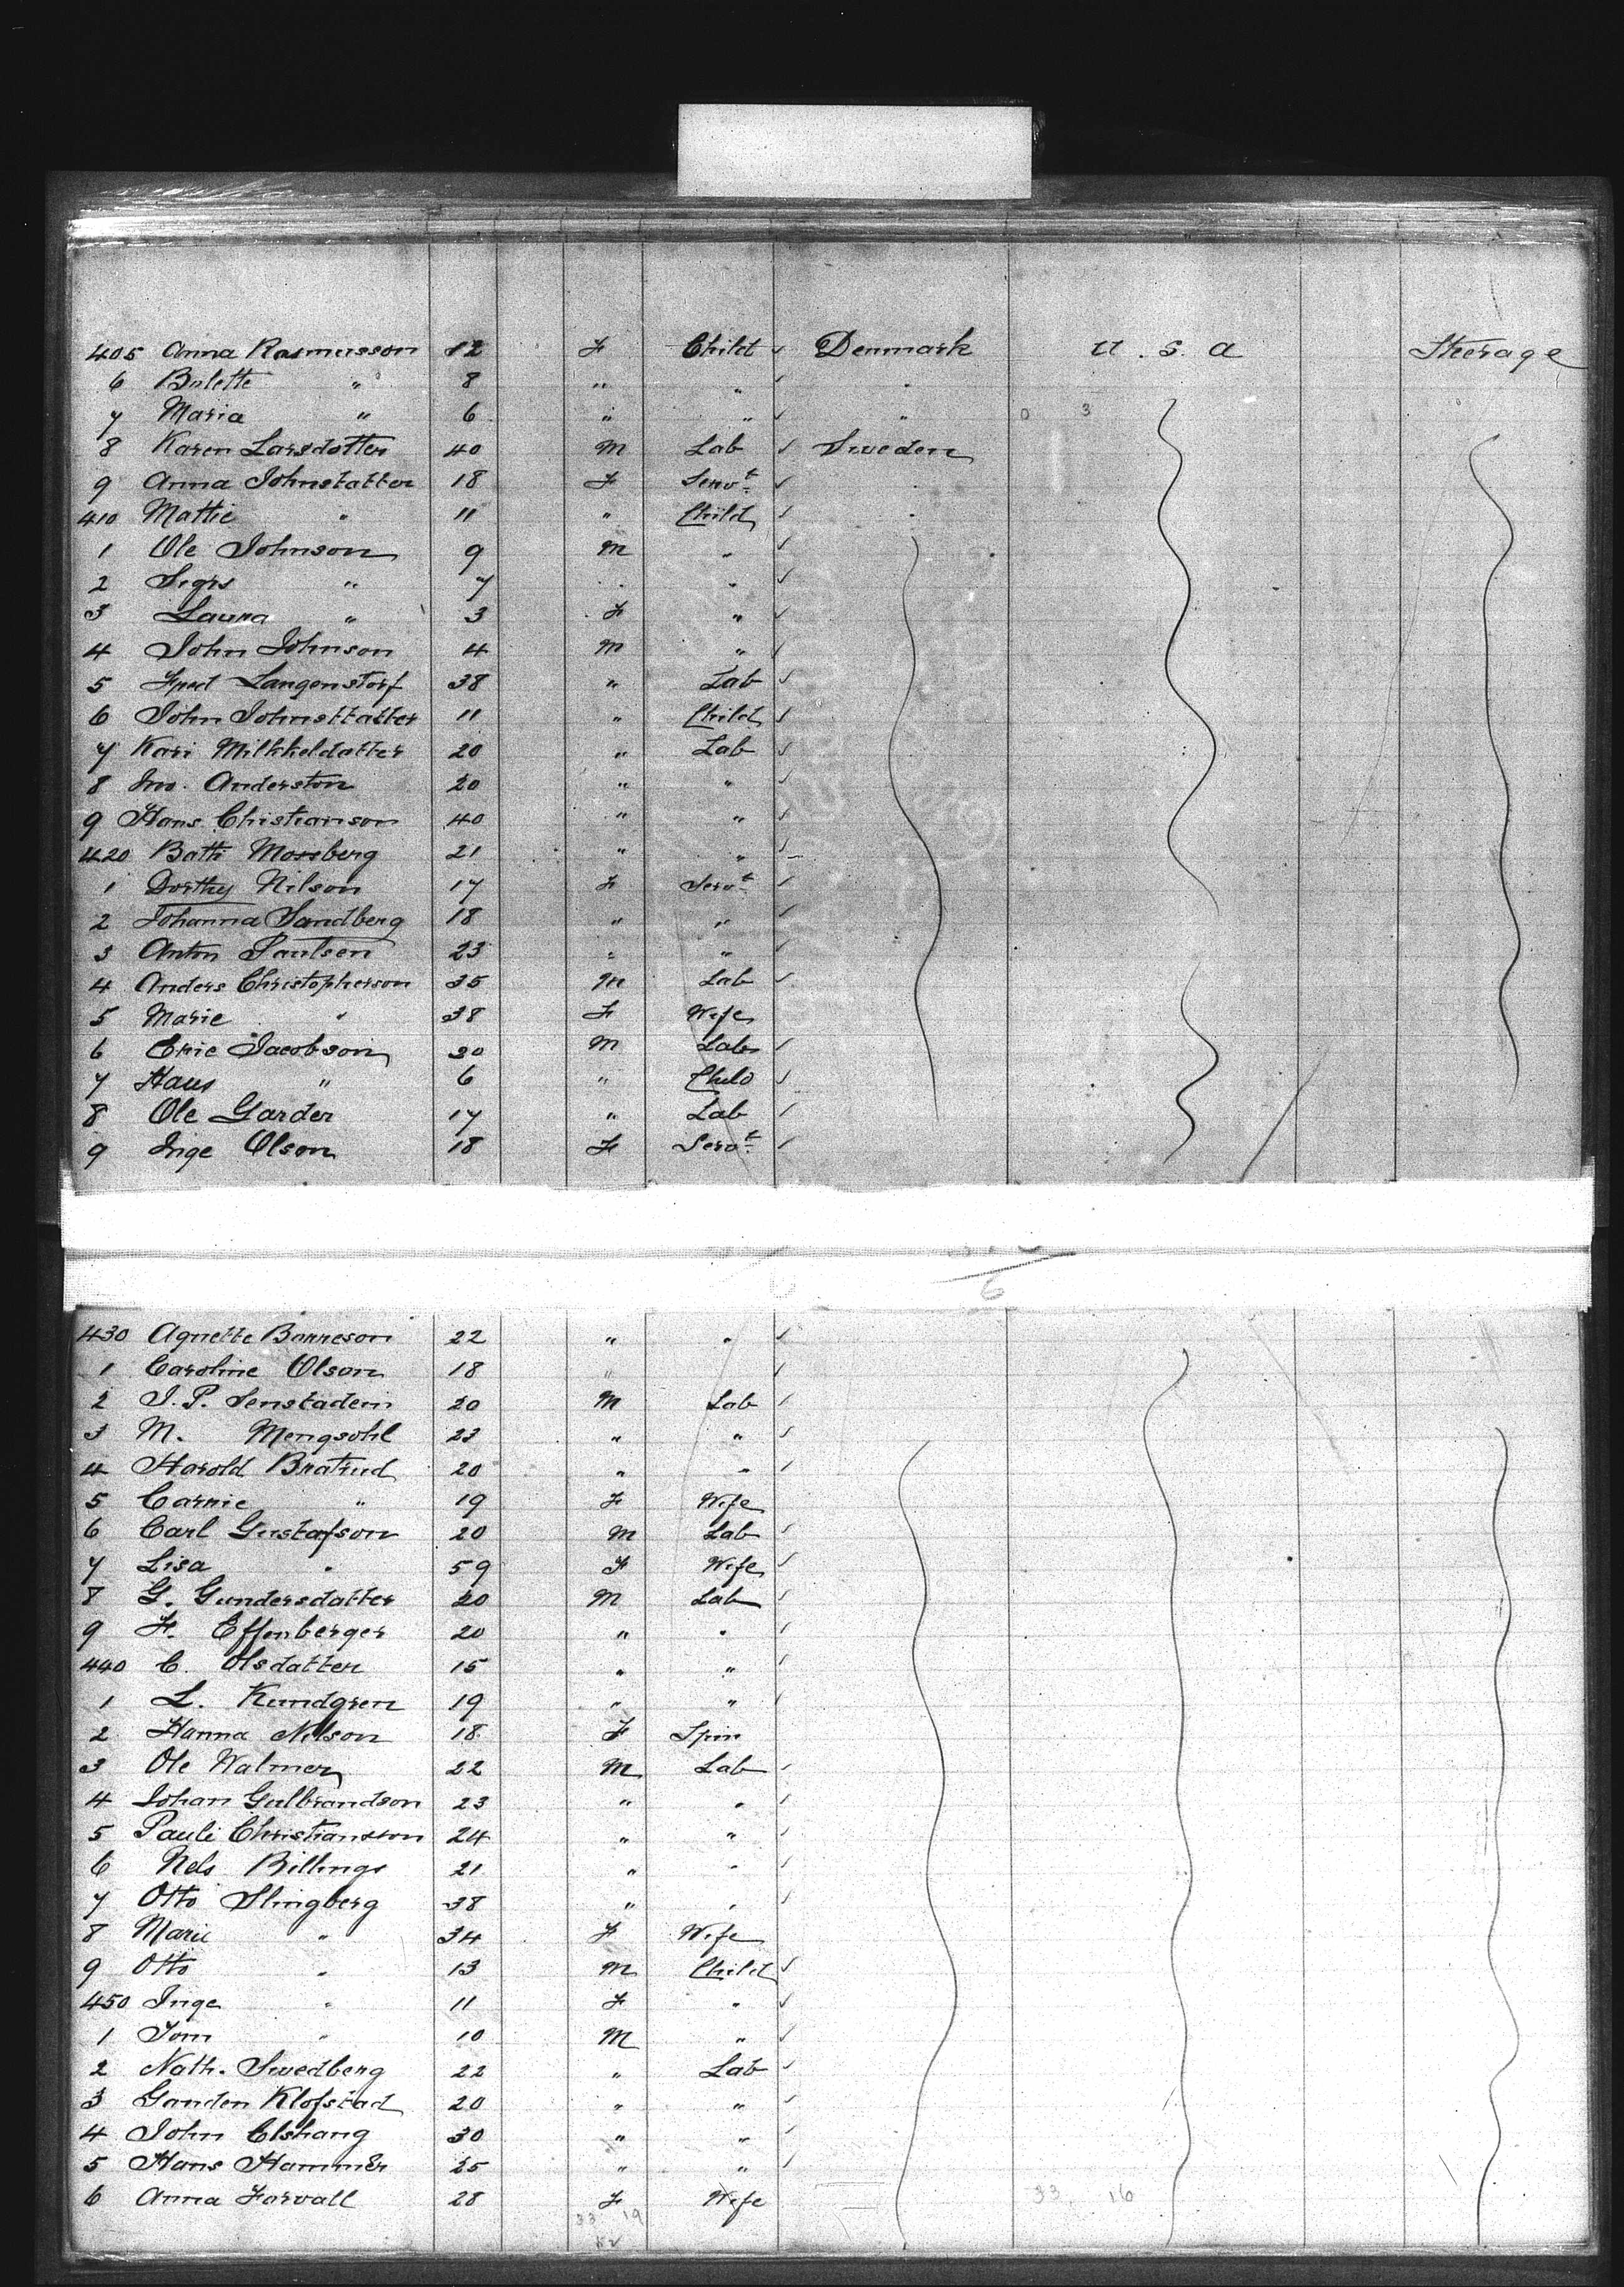 405 Anna Rasmusson 12 F Child ✓ Denmark U.S.A Steerage
6 Bolette " 8 " " ✓ "
7 Maria " 6 " " ✓ " 0 3
8 Karen Larsdotter 40 M Lab ✓ Sweden
9 Anna Johnstatter 18 F Servt ✓
410 Mattie " 11 " Child ✓ "
1 Ole Johnson 9 M " ✓
2 " 7 " " ✓
3 Laura " 3 F " ✓
4 John Johnson 4 M " ✓
5 Langenstorf 38 " Lab ✓
6 John Johnsttatter 11 " Child ✓
7 Kari Milkheldatter 20 " Lab ✓
8 Jno. Anderston 20 " " ✓
9 Hans Christianson 40 " " ✓
420 Batti Mossberg 21 " " ✓
1 Dorthy Nilson 17 F Servt ✓
2 Johanna Sandberg 18 " " ✓
3 Anton Paulsen 23 " " ✓
4 Anders Christopherson 35 M Lab ✓
5 Marie " 38 F Wife
6 Eric Jacobson 30 M Lab ✓
7 Haus " 6 " Child ✓
8 Ole Garder 17 " Lab ✓
9 Inge Olson 18 F Servt ✓
6
430 Agnette Borreson 22 " " ✓
1 Caroline Olson 18 " ✓
2 J. P. Senstadein 20 M Lab ✓
3 M. Mengsohl 23 " " ✓
4 Harold Bratrud 20 " " ✓
5 Carnie " 19 F Wife
6 Carl Gustafson 20 M Lab ✓
7 Lisa " 59 F Wife ✓
8 G. Gundersdatter 20 M Lab ✓
9 F. Effenberger 20 " " ✓
440 C. Olsdatter 15 " " ✓
1 L. Kundgren 19 " " ✓
2 Hanna Nilson 18 F Spin
3 Ole Walmer 22 M Lab ✓
4 Johan Gulbrandson 23 " " ✓
5 Pauli Christianson 24 " " ✓
6 Nels Billings 21 " " ✓
7 Otto Slingberg 38 " " ✓
8 Marie " 34 F Wife
9 Otto " 13 M Child ✓
450 Inge " 11 F " ✓
1 Tom " 10 M " ✓
2 Nath. Swedberg 22 " Lab ✓
3 Ganden Klofstad 20 " " ✓
4 John Elshang 30 " " ✓
5 Hans Hammer 25 " " ✓
6 Anna Forvall 28 F Wife 33 16
33 19
52